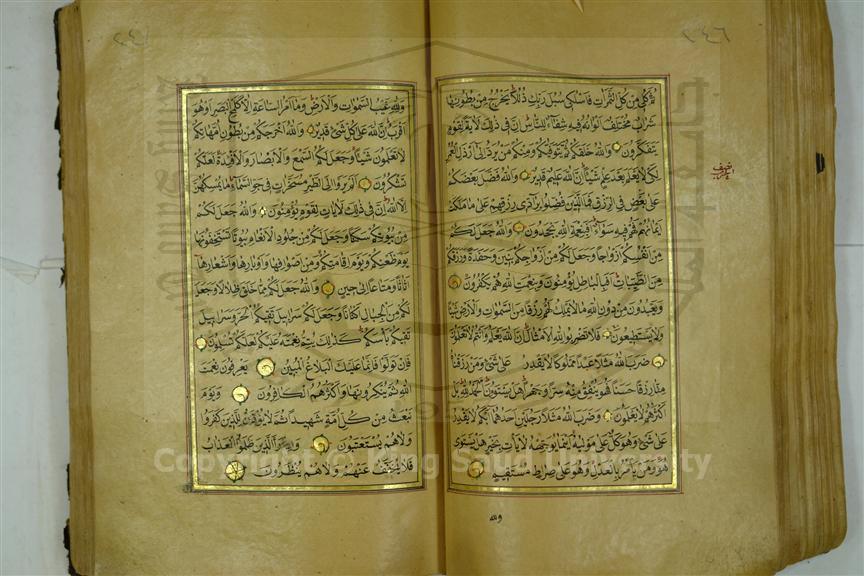 ثم كلي من كل الثمرات فاسلكي سبل ربك ذللا يخرج من بطونها
شراب مختلف الوانه فيه شفاء للناس ان في ذلك لاية لقوم
يتفكرون والله خلقكم ثم يتوفيكم ومنكم من يرد الى ارذل العمر
لكي لا يعلم بعد علم شيئا ان الله عليم قدير والله فضل بعضكم
على بعض في الرزق فما الذين فضلوا برادي رزقهم على ما ملكت
ايمانهم فهم فيه سواء افبنعمة الله يجحدون والله جعل لكم
من انفسكم ازواجا وجعل لكم من ازواجكم بنين وحفدة ورزقكم
من الطيبات افبالباطل يؤمنون وبنعمت الله هم يكفرون
ويعبدون من دون الله ما لا يملك لهم رزقا من السموات والارض شيئا
ولا يستطيعون فلا تضربوا لله الامثال ان الله يعلم وانتم لا تعلمون
ضرب الله مثلا عبدا مملوكا لا يقدر على شئ ومن رزقناه
منا رزقا حسنا فهو ينفق منه سرا وجهرا هل يستون الحمد لله بل
اكثرهم لا يعلمون وضرب الله مثلا رجلين احدهما ابكم لا يقدر
على شئ وهو كل على موليه اينما يوجهه لا يأت بخير هل يستوى
هو ومن يأمر بالعدل وهو على صراط مستقيم
ولله
ولله غيب السموات والارض وما امر الساعة الا كلمح البصر او هو
اقرب ان الله على كل شئ قدير والله اخرجكم من بطون امهاتكم
لا تعلمون شيئا وجعل لكم السمع والابصار والافئدة لعلكم
تشكرون الم يروا الى الطير مسخرات في جو السماء ما يمسكهن
الا الله ان في ذلك لايات لقوم يؤمنون والله جعل لكم
من بيوتكم سكنا وجعل لكم من جلود الانعام بيوتا تستخفونها
يوم ظعنكم ويوم اقامتكم ومن اصوافها واوبارها واشعارها
اثاثا ومتاعا الى حين والله جعل لكم مما خلق ظلالا وجعل
لكم من الجبال اكنانا وجعل لكم سرابيل تقيكم الحر وسرابيل
تقيكم بأسكم كذلك يتم نعمته عليكم لعلكم تسلمون
فان تولوا فانما عليك البلاغ المبين يعرفون نعمت
الله ثم ينكرونها واكثرهم الكافرون ويوم
نبعث من كل امة شهيدا ثم لا يؤذن للذين كفروا
ولا هم يستعتبون واذا رأ الذين ظلموا العذاب
فلا يخفف عنهم ولا هم ينظرون
Copyright © King Saud University